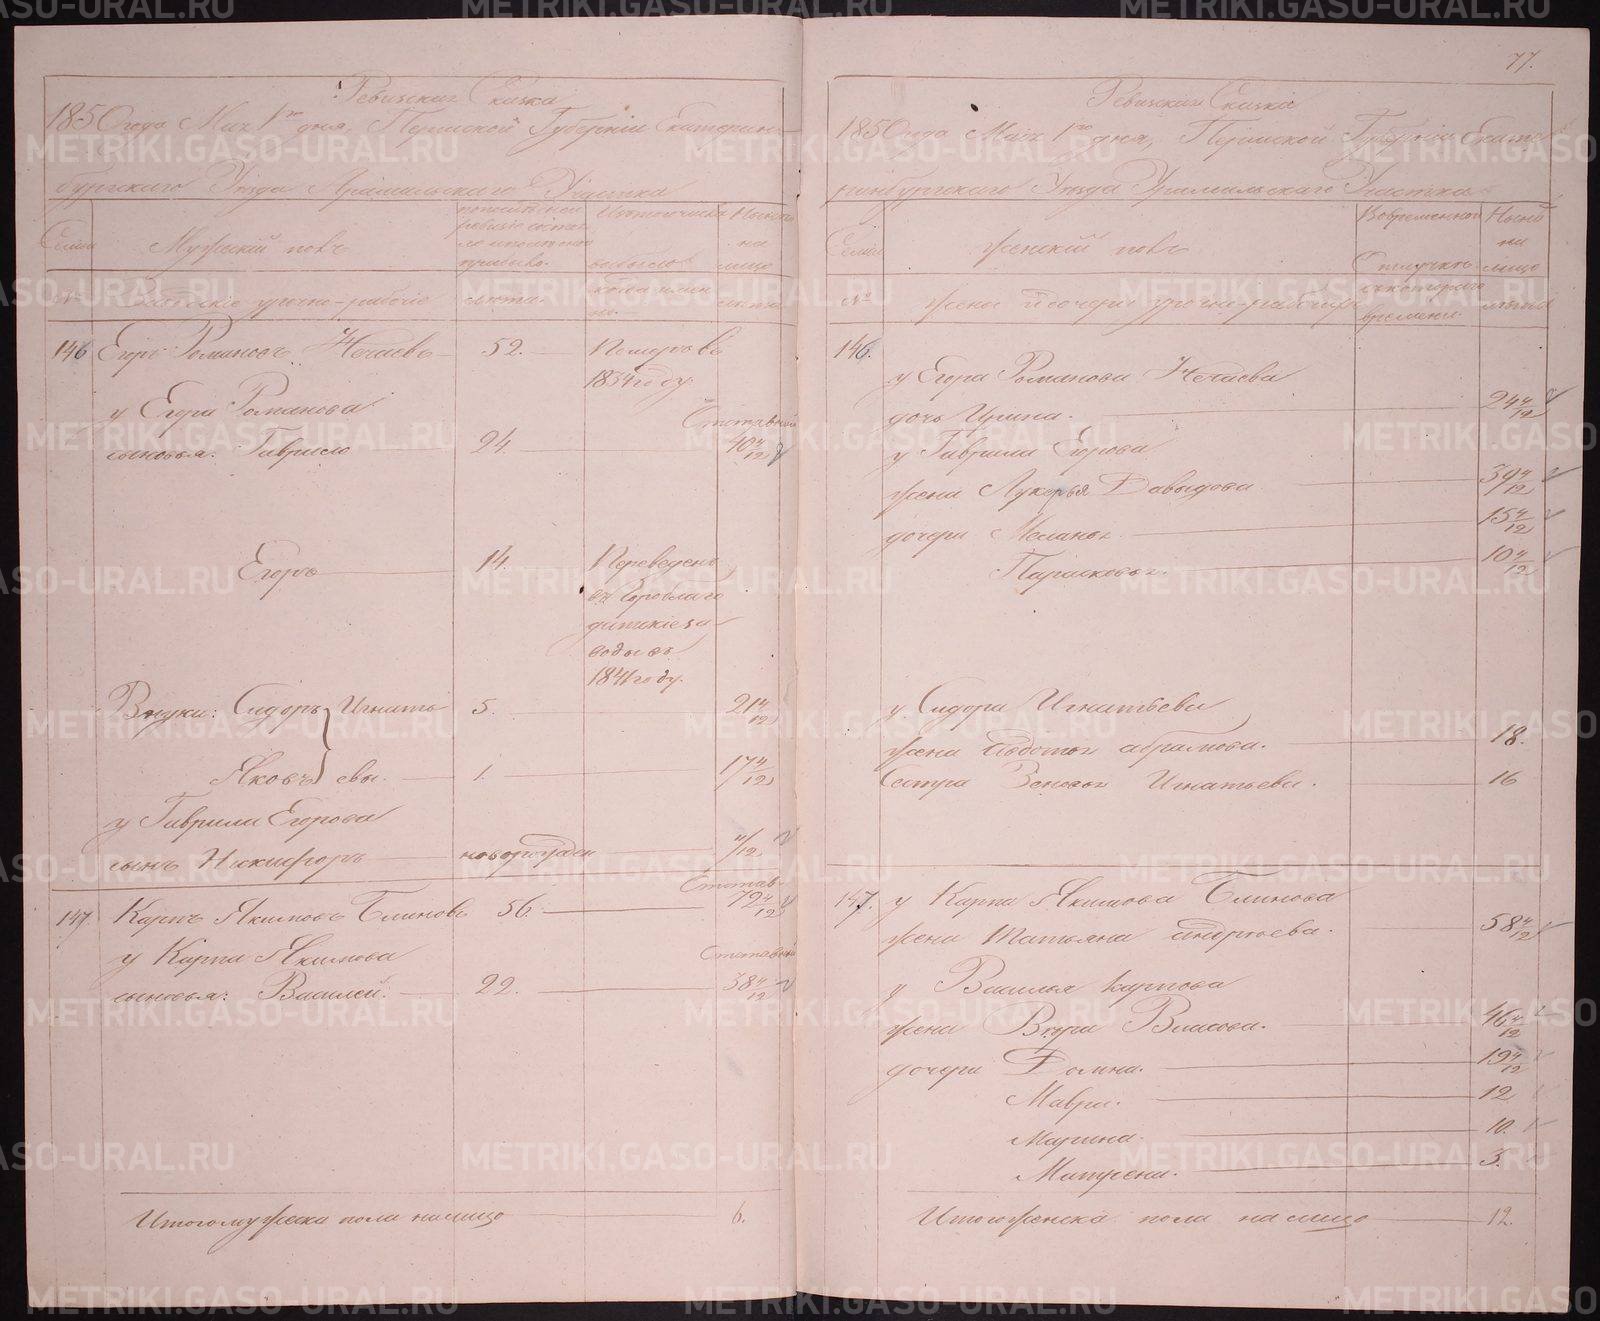 77.
Ревизская Сказка
1850 года Мая 1го дня, Пермской Губернiи Екатерин-
бургскаго Уезда Арамильскаго Участка
Семьи
Мужескiй полъ
по последней ревизiи состояло
Изъ того числа выбыло
Ныне на лицо
№
когда имен но.
лета.
146 Егоръ Романовъ Нечаевъ 52. Померъ въ
1834 году.
у Егора Романова
сыновья: Гаврило 24. Отставный 40 4/12
Егоръ 14. Переведенъ
въ Гороблаго
датскiе за
воды въ
1841 году.
Внуки: Сидоръ Игнать 5. 21 4/12
Яковъ евы. 1. 17 4/12
у Гаврили Егорова
сынъ Никифоръ новорожден 4/12
147. Карпъ Якимовъ Блиновъ 56. Отстав- 72 4/12
у Карпа Якимова
сыновья: Василей. 22. Отставный 38 4/12
Итого мужеска пола на лицо 6.
Ревизская Сказка
1850 года Мая 1го дня, Пермской Губернiи Екате
ринбургскаго Уезда Арамильскаго Участка
Семьи
Женскiй полъ
Во временной отлучке
Ныне на лицо
№
съ котораго времени.
лета
146.
у Егора Романова Нечаева
дочь Ирина. 24 4/12
у Гаврили Егорова
жена Лукерья Давыдова 39 4/12
дочери Меланья 15 4/12
Парасковья. 10 4/12
у Сидора Игнатьева
жена Авдотья Абрамова. 18.
сестра Зеновья Игнатьева. 16
147. у Карпа Якимова Блинова
жена Татьяна Андреева. 58 4/12
у Василья Карпова
жена Вера Власова. 46 4/12
дочери Домна. 19 4/12
Мавра. 12
Марина. 10.
Матрена. 3.
Итого женска пола на лицо 12.
METRIKI.GASO-URAL.RU